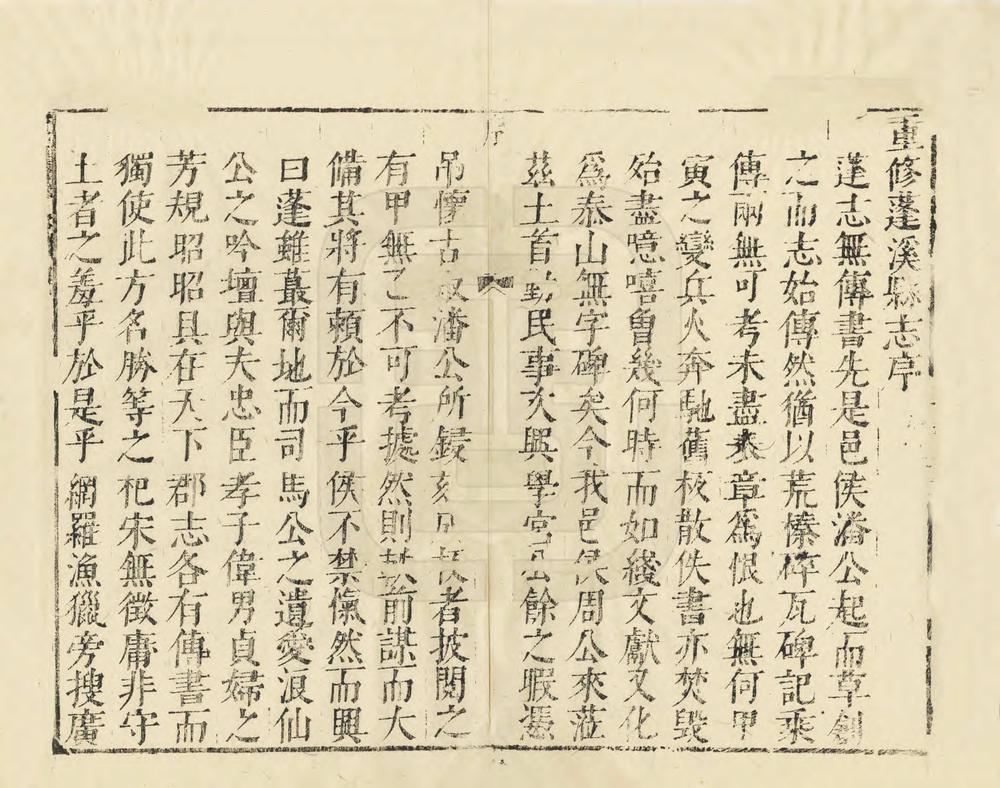 重修蓬溪縣志序
蓬志無傳書先是邑侯潘公起而草創
之而志始傳然猶以荒榛碎瓦碑記乘
傳兩無可考未盡表章爲恨也無何甲
寅之變兵火奔馳舊板散佚書亦焚毀
殆盡噫嘻曾幾何時而如綫文獻又化
爲泰山無字碑矣今我邑侯周公來蒞
茲土首勤民事次興學宮公餘之暇憑
序
弔懷古取潘公所鋟刻 者披閱之
有甲無乙不可考據然則 前謀而大
備其將有賴於今乎侯不禁愾然而興
曰蓬雖蕞爾地而司馬公之遺愛浪仙
公之吟壇與夫忠臣孝子偉男貞婦之
芳規昭昭具在天下郡志各有傳書而
獨使此方名勝等之杞宋無徵庸非守
土者之羞乎於是乎網羅漁獵旁搜廣